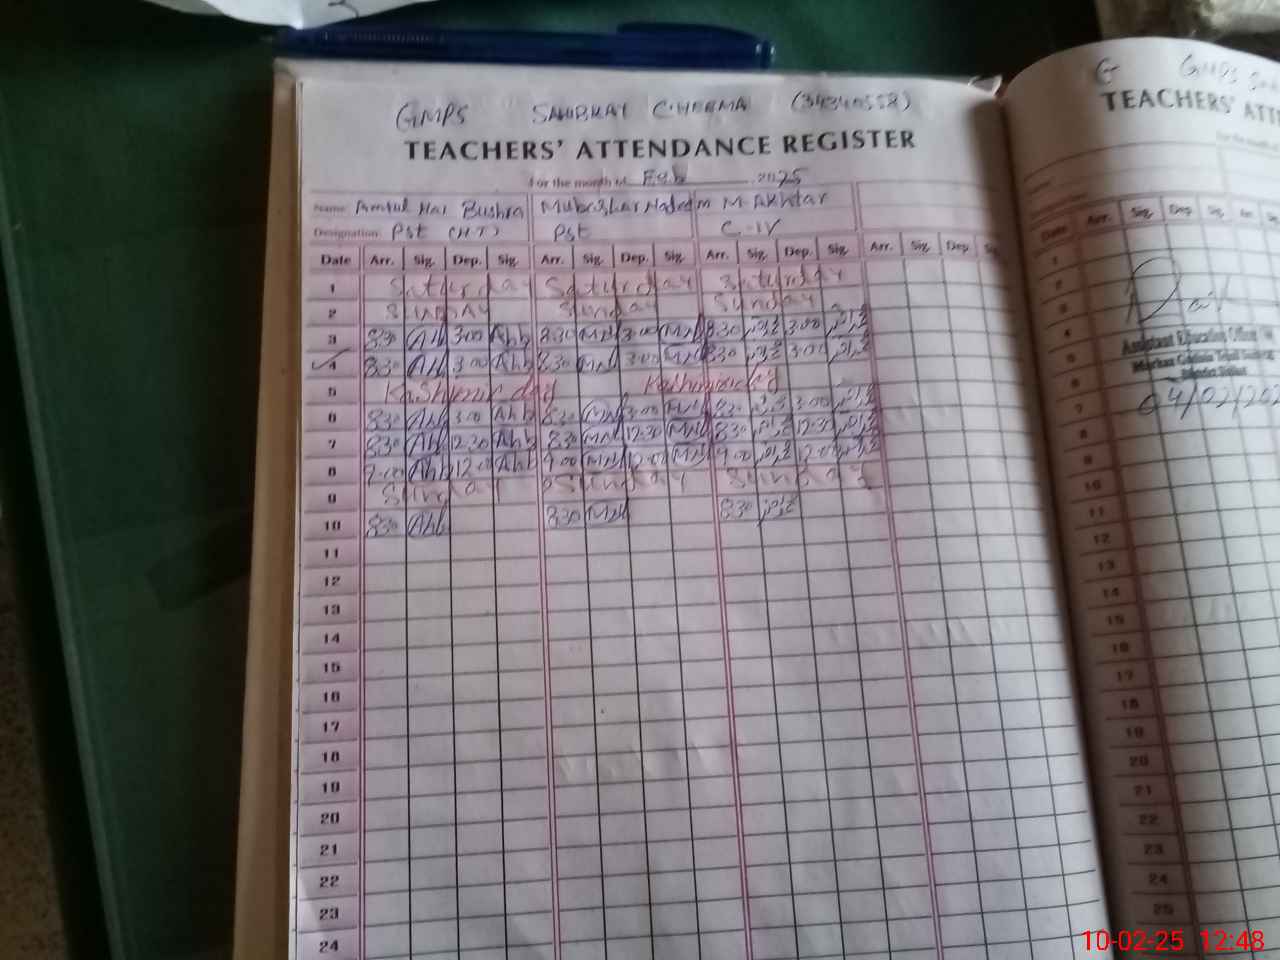 GMPS SAHIBKAY CHEEMA (34340558)
TEACHERS' ATTENDANCE REGISTER
For the month of Feb 2025
Name Amtul Hai Bushra Mubashar Nadeem M. Akhtar
Designation PST (H.T) PST C-IV
Date Arr. Sig. Dep. Sig. Arr. Sig. Dep. Sig. Arr. Sig. Dep. Sig. Arr. Sig. Dep.
1 Saturday Saturday Saturday
2 Sunday Sunday Sunday
3 8:30 Ahb 3:00 Ahb 8:30 3:00 8:30 3:00
4 8:30 Ahb 3:00 Ahb 8:30 3:00 8:30 3:00
5 Kashmir day Kashmir day
6 8:30 Ahb 3:00 Ahb 8:30 3:00 8:30 3:00
7 8:30 Ahb 12:30 Ahb 8:30 12:30 8:30 12:30
8 9:00 Ahb 12:00 Ahb 9:00 12:00 9:00 12:00
9 Sunday Sunday Sunday
10 8:30 Ahb 8:30 8:30
11
12
13
14
15
16
17
18
19
20
21
22
23
24
G GMPS
TEACHERS' ATT
Date Arr. Sig. Dep. Sig. Arr. Sig.
1
2
3
4
5
6
7
8
9
10
11
12
13
14
15
16
17
18
19
20
21
22
23
24
25
Assistant Education Officer
04/02/202
10-02-25 12:48